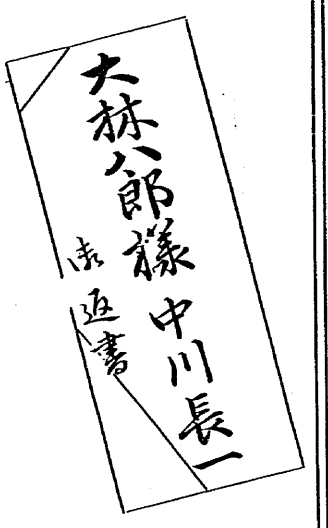 大林八郎様
中川長一
御返書